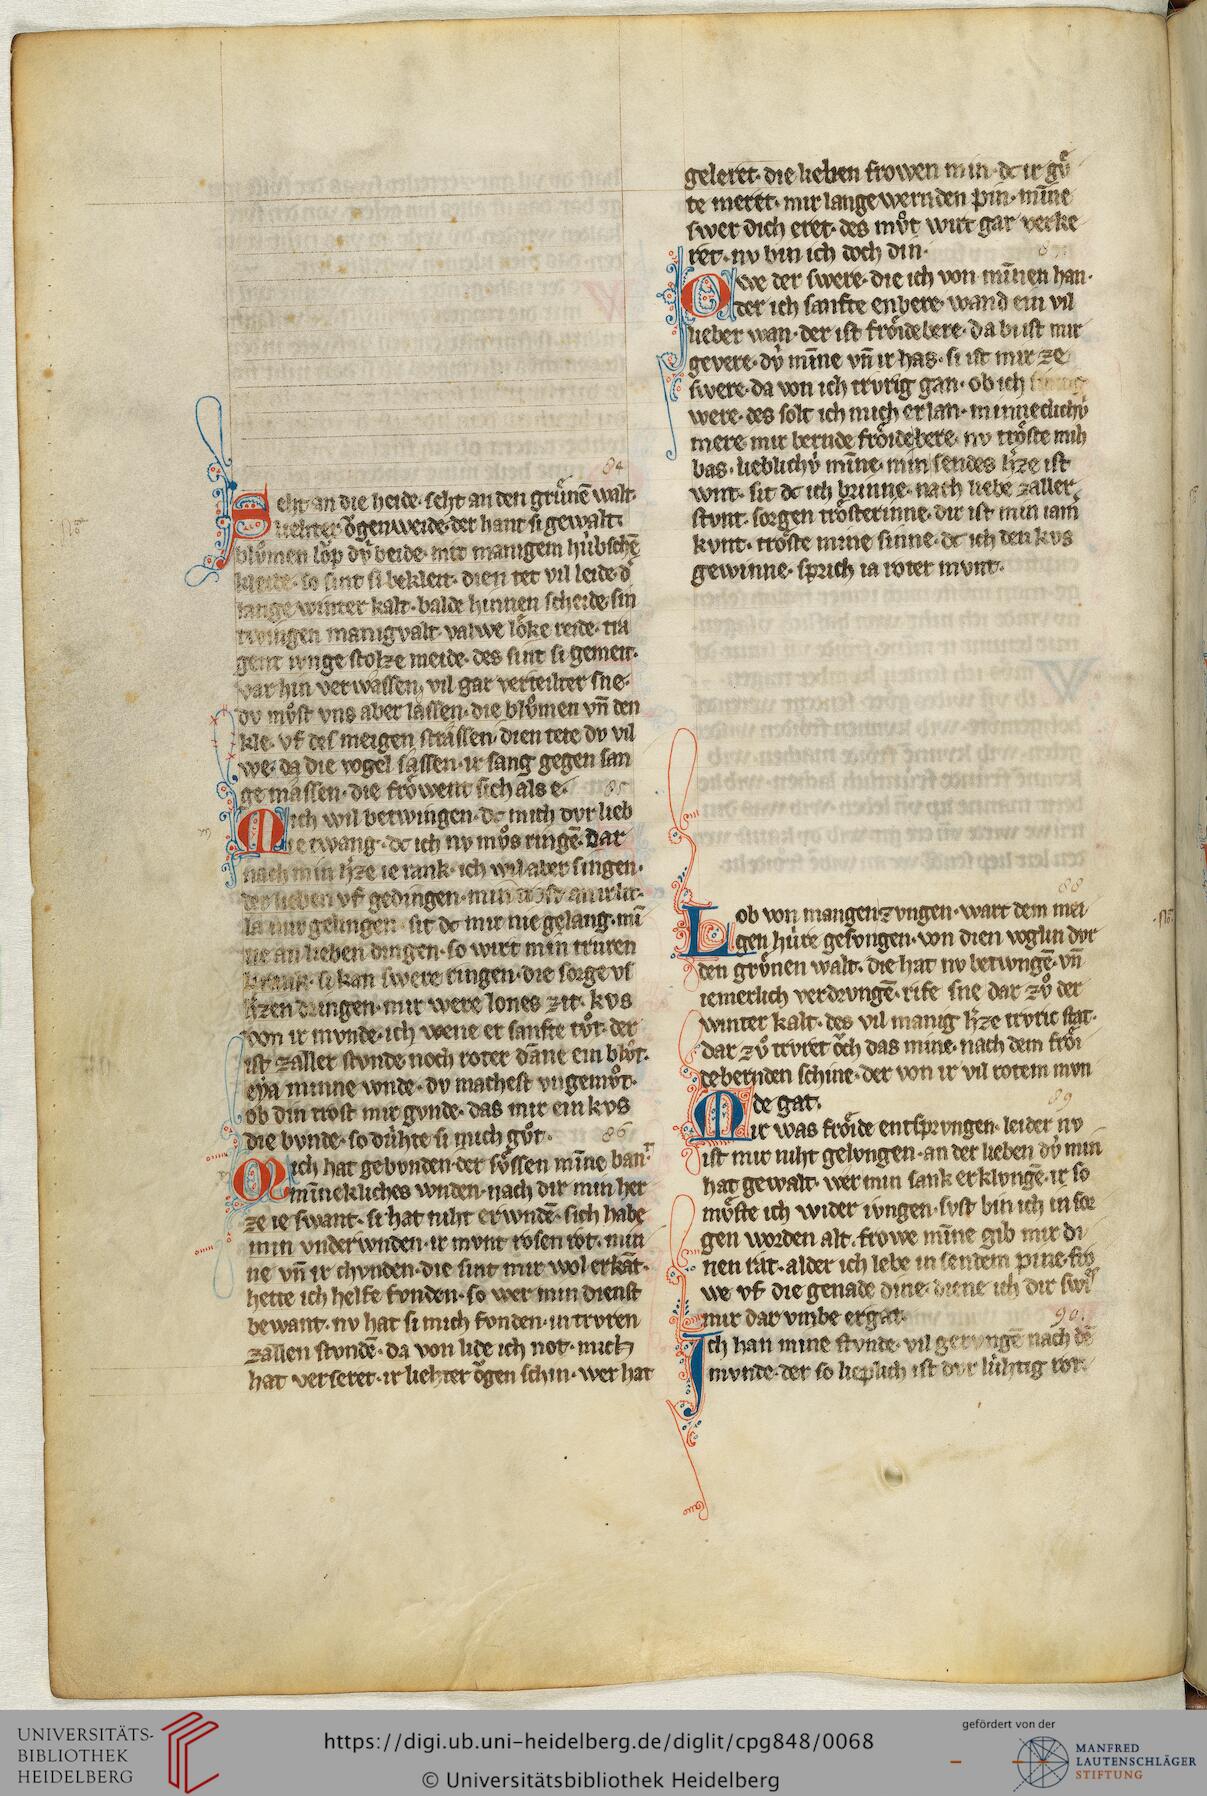 84
Seht an die heide· seht an den gruͤnē walt·
liehter oͮgenweide· der hant si gewalt·
bluͦmen loͮp dv́ beide· mit manigem hv́bschē
kleide· so sint si bekleit· dien tet vil leide· d͛
lange winter kalt· balde hinnen scheide· sin
twingen manigvalt· valwe loͤke reide· tra
gent ivnge stolze meide· des sint si gemeit·
var hin verwassen, vil gar verteilter sne·
dv muͦst vns aber lassen· die bluͦmen vn̄ den
kle· vf des meigen strassen· dien tete dv vil
we· da die vogel sassen· ir sang gegen san
ge massen· die froͤwent sich als e·
85
Mich wil betwingen· dc mich dvr lieb
ie twang· dc ich nv muͦs ringē· dar
nach min h͛ze ie rank· ich wil aber singen·
der lieben vf gedingen· min trost an ir lit·
la mir gelingen· sit dc mir nie gelang· mī
ne an lieben dingen· so wirt min truren
krank· si kan swere ringen· die sorge vs
h͛zen dringen· mir were lones zit· kvs
von ir mvnde· ich wene er sanfte tuͦt· der
ist zaller stvnde noch roter dāne ein bluͦt·
eya minne vnde· dv machest vngemuͦt·
ob din trost mir gvnde· das mir ein kvs
die bvnde· so dv́hte si mich guͦt·
86
Mich hat gebvnden· der suͤssen mīne bant
mīnekliches wnden· nach dir min her
ze ie swant· si hat niht erwndē· sich habe
min vnderwnden· ir mvnt rosen rot· min
ne vn̄ ir chvnden· die sint mir wol erkāt·
hette ich helfe fvnden· so wer min dienst
bewant· nv hat si mich fvnden· in trvren
zallen stvndē· da von lide ich not· mich
hat verseret· ir liehter oͮgen schin· wer hat
geleret· die lieben frowen min· dc ir guͤ
te meret· mir lange wernden pin· mīne
swer dich eret· des muͦt wirt gar verke
ret· nv bin ich doch din·
87
Owe der swere· die ich von minnen han·
der ich sanfte enbere· wand ein vil
lieber wan· der ist froͤidebere· da bi ist mir
gevere· dv́ mīne vn̄ ir has· si ist mir ze
swere· da von ich trvrig gan· ob ich sinnig
were· des solt ich mich erlan· minneclichv́
mere mir bernde froͤidebere· nv troͤste mih
bas· lieblichv́ mīne· min sendes h͛ze ist
wnt· sit dc ich brinne· nach liebe zaller
stvnt· sorgen troͤsterinne· dir ist min iam͛
kvnt· troͤste mine sinne· dc ich den kvs
gewinne· sprich ia roter mvnt·
88
Lob von mangen zvngen· wart dem mei
gen hv́re gesvngen· von dien voglin dvr
den gruͤnen walt· die hat nv betwngē· vn̄
iemerlich verdrvngē· rife sne dar zuͦ der
winter kalt· des vil manig h͛ze trvric stat·
dar zuͦ trvret oͮch das mine· nach dem froͤi
debernden schine· der von ir vil rotem mvn
de gat·
89
Mir was froͤide entsprvngen· leider nv
ist mir niht gelvngen· an der lieben dv́ min
hat gewalt· wer min sank erklvngē· ir so
muͤste ich wider ivngen· svst bin ich in sor
gen worden alt· frowe mīne gib mir di
nen rat· alder ich lebe in sendem pine· fro
we vf die genade dine· diene ich dir swie
mir dar vmbe ergat·
90
Ich han mine stvnde· vil gervngē nach dē
mvnde· der so lieplich ist dvr lv́htig rot·
UNIVERSITÄTS-
BIBLIOTHEK
HEIDELBERG
https://digi.ub.uni-heidelberg.de/diglit/cpg848/0068
© Universitätsbibliothek Heidelberg
gefördert von der
MANFRED
LAUTENSCHLÄGER
STIFTUNG